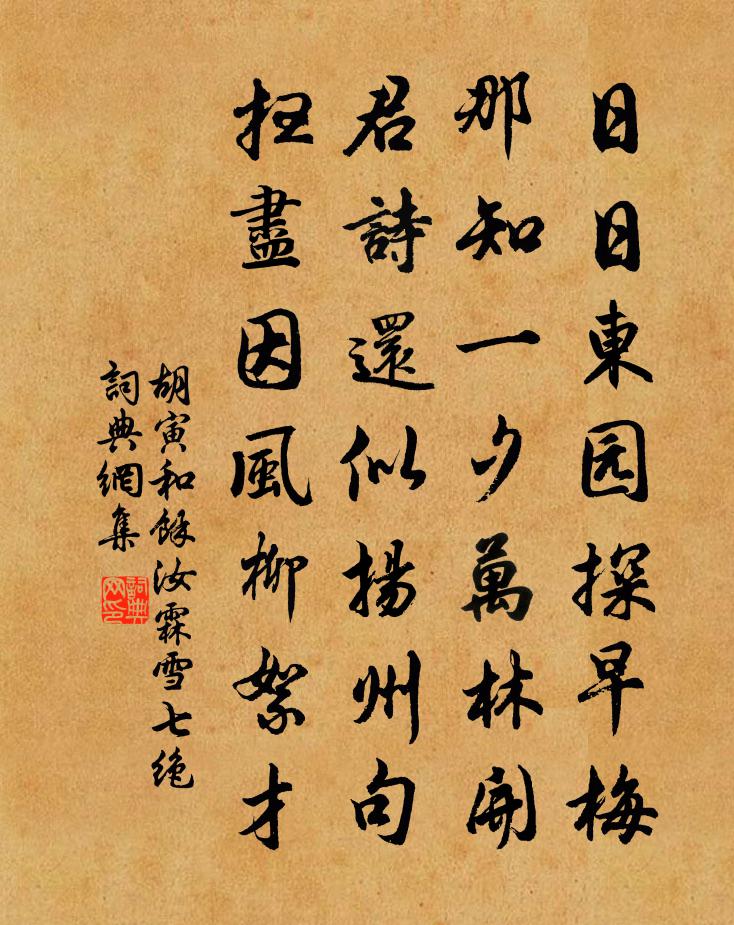 日日東园探早梅
那知一夕萬林開
君詩還似揚州句
抂盡因風柳絮才
胡寅和餘汝霖雪七絶
詞典網集
詞典网印